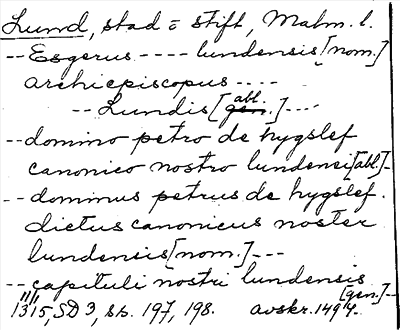 Lund, stad o stift, Malm. l.
-- Esgerus ---- lundensis [nom.]
archiepiscopus ----
-- Lundis [abl.] ---
-- domino petro de hygslef
canonico nostro lundensi [abl.] -
-- dominus petrus de hygslef.
dictus canonicus noster
lundensis [nom.] ---
-- capituli nostri lundensis
[gen.] --
1315, SD 3, ss. 197, 198. avskr. 1494.